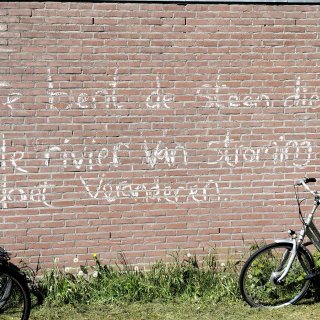 Je bent de steen die
de rivier van stroming
doet veranderen.